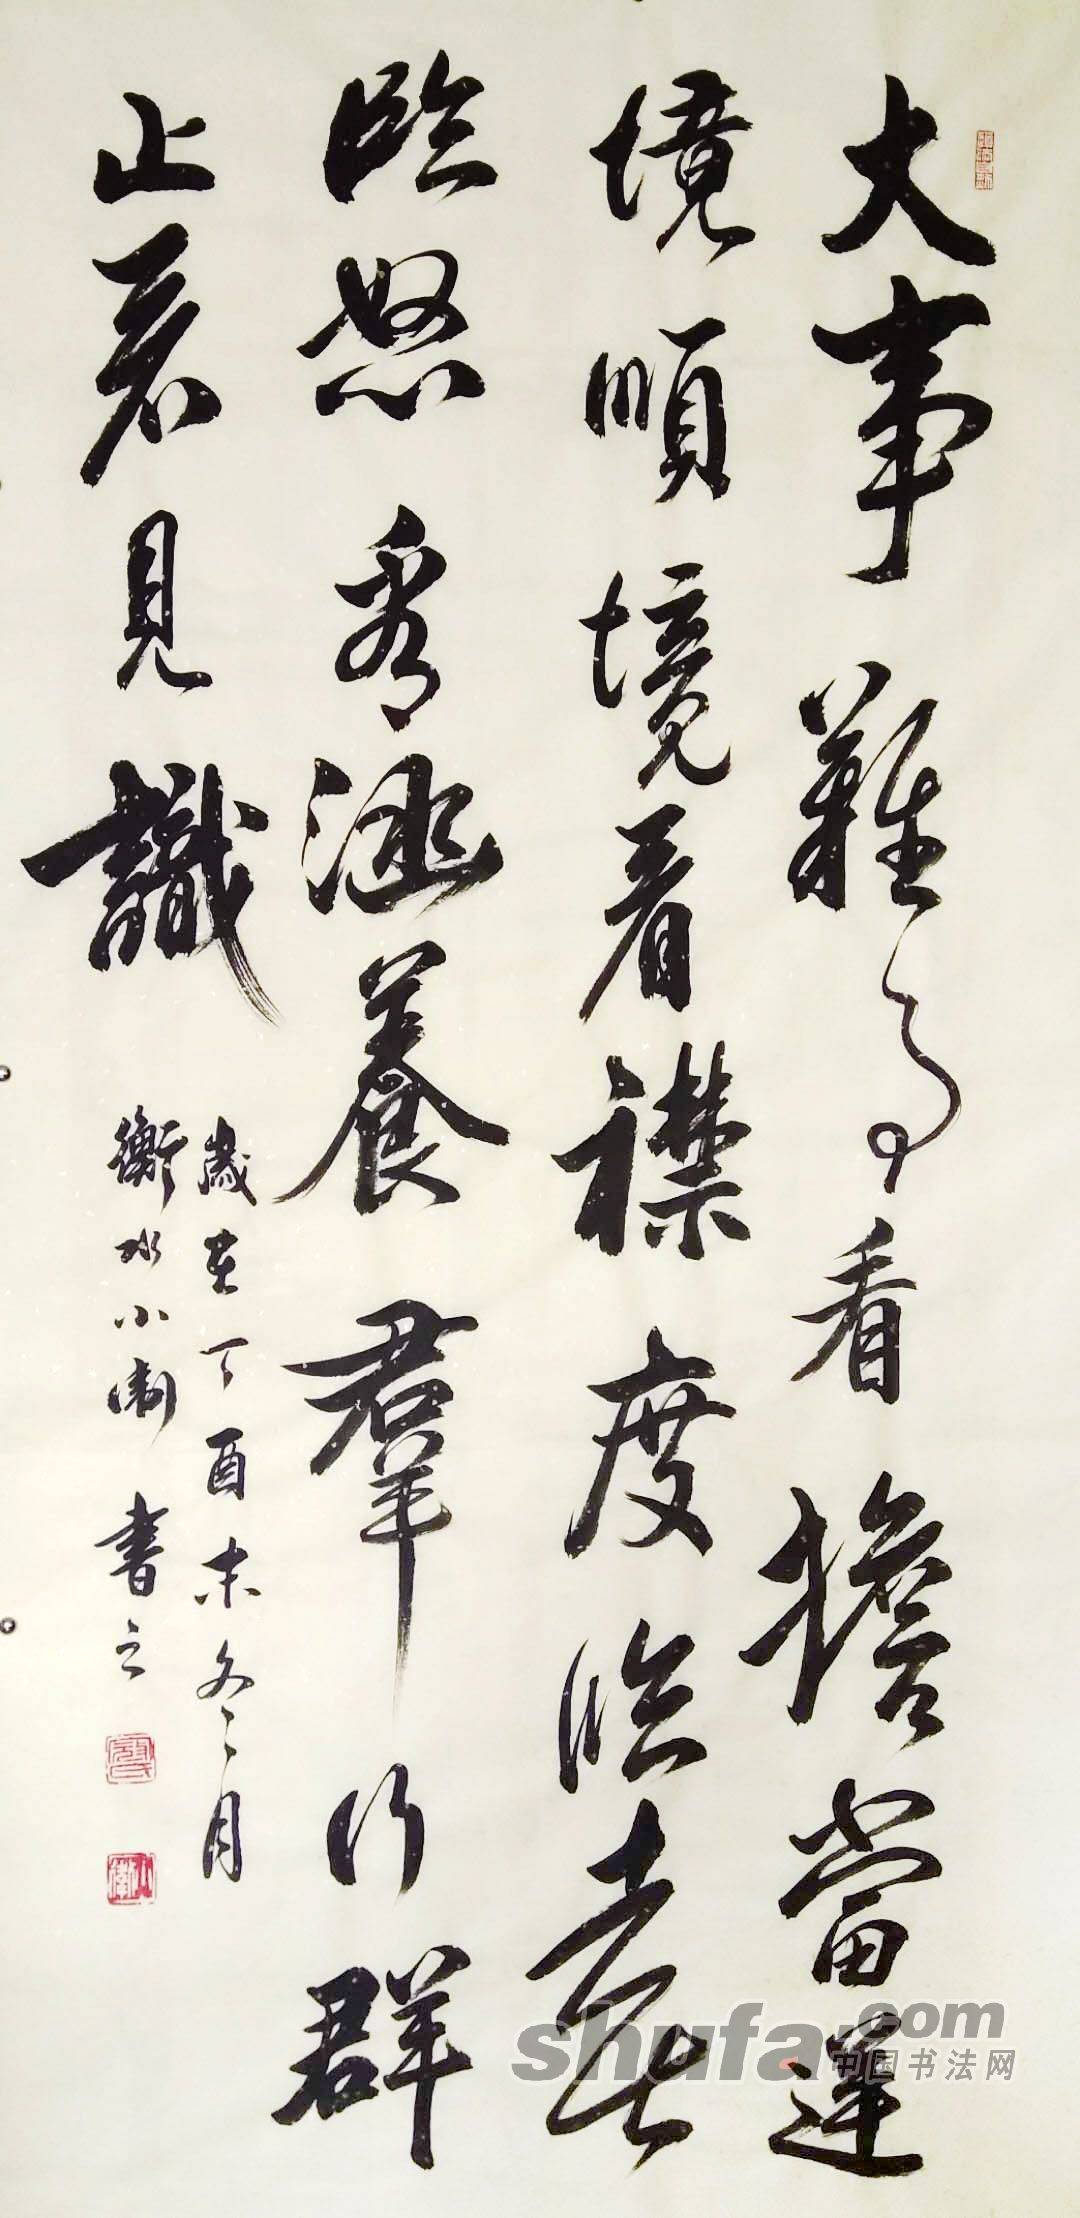 大事難事看擔當逆
境順境看襟度臨喜
臨怒看涵養羣行群
止看見識
歲在丁酉末冬之月
衡水小衛書之
shufa.com
中国书法网